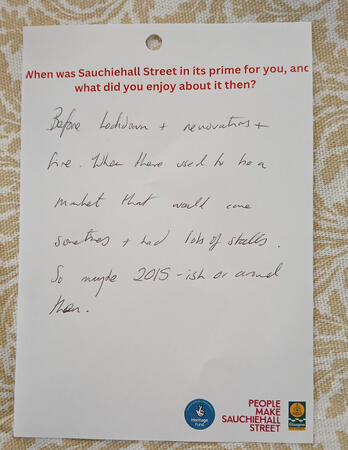 When was Sauchiehall Street in its prime for you, and
what did you enjoy about it then?
Before lockdown + renovations +
fire. When there used to be a
market that would come
sometimes + had lots of stalls.
So maybe 2015-ish or around
then.
Heritage
Fund
PEOPLE
MAKE
SAUCHIEHALL
STREET
Glasgow